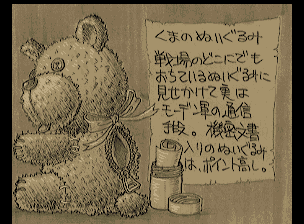 くまのぬいぐるみ
戦場のどこにでも
おちているぬいぐるみに
見せかけて実は
モーデン軍の通信
手段。機密文書
入りのぬいぐるみ
は、ポイント高し。